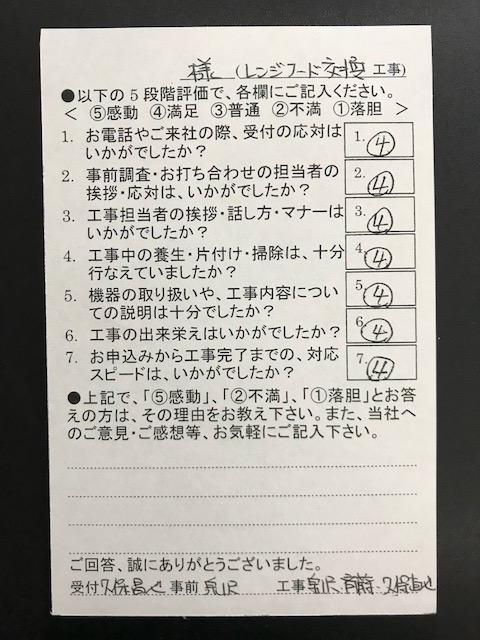 様 (レンジフード交換 工事)
●以下の5段階評価で、各欄にご記入ください。
< ⑤感動 ④満足 ③普通 ②不満 ①落胆 >
1. お電話やご来社の際、受付の応対は
いかがでしたか?
1. ④
2. 事前調査・お打ち合わせの担当者の
挨拶・応対は、いかがでしたか?
2. ④
3. 工事担当者の挨拶・話し方・マナーは
いかがでしたか?
3. ④
4. 工事中の養生・片付け・掃除は、十分
行なえていましたか?
4. ④
5. 機器の取り扱いや、工事内容につい
ての説明は十分でしたか?
5. ④
6. 工事の出来栄えはいかがでしたか?
6. ④
7. お申込みから工事完了までの、対応
スピードは、いかがでしたか?
7. ④
●上記で、「⑤感動」、「②不満」、「①落胆」とお答
えの方は、その理由をお教え下さい。また、当社へ
のご意見・ご感想等、お気軽にご記入下さい。
ご回答、誠にありがとうございました。
受付 事前 工事